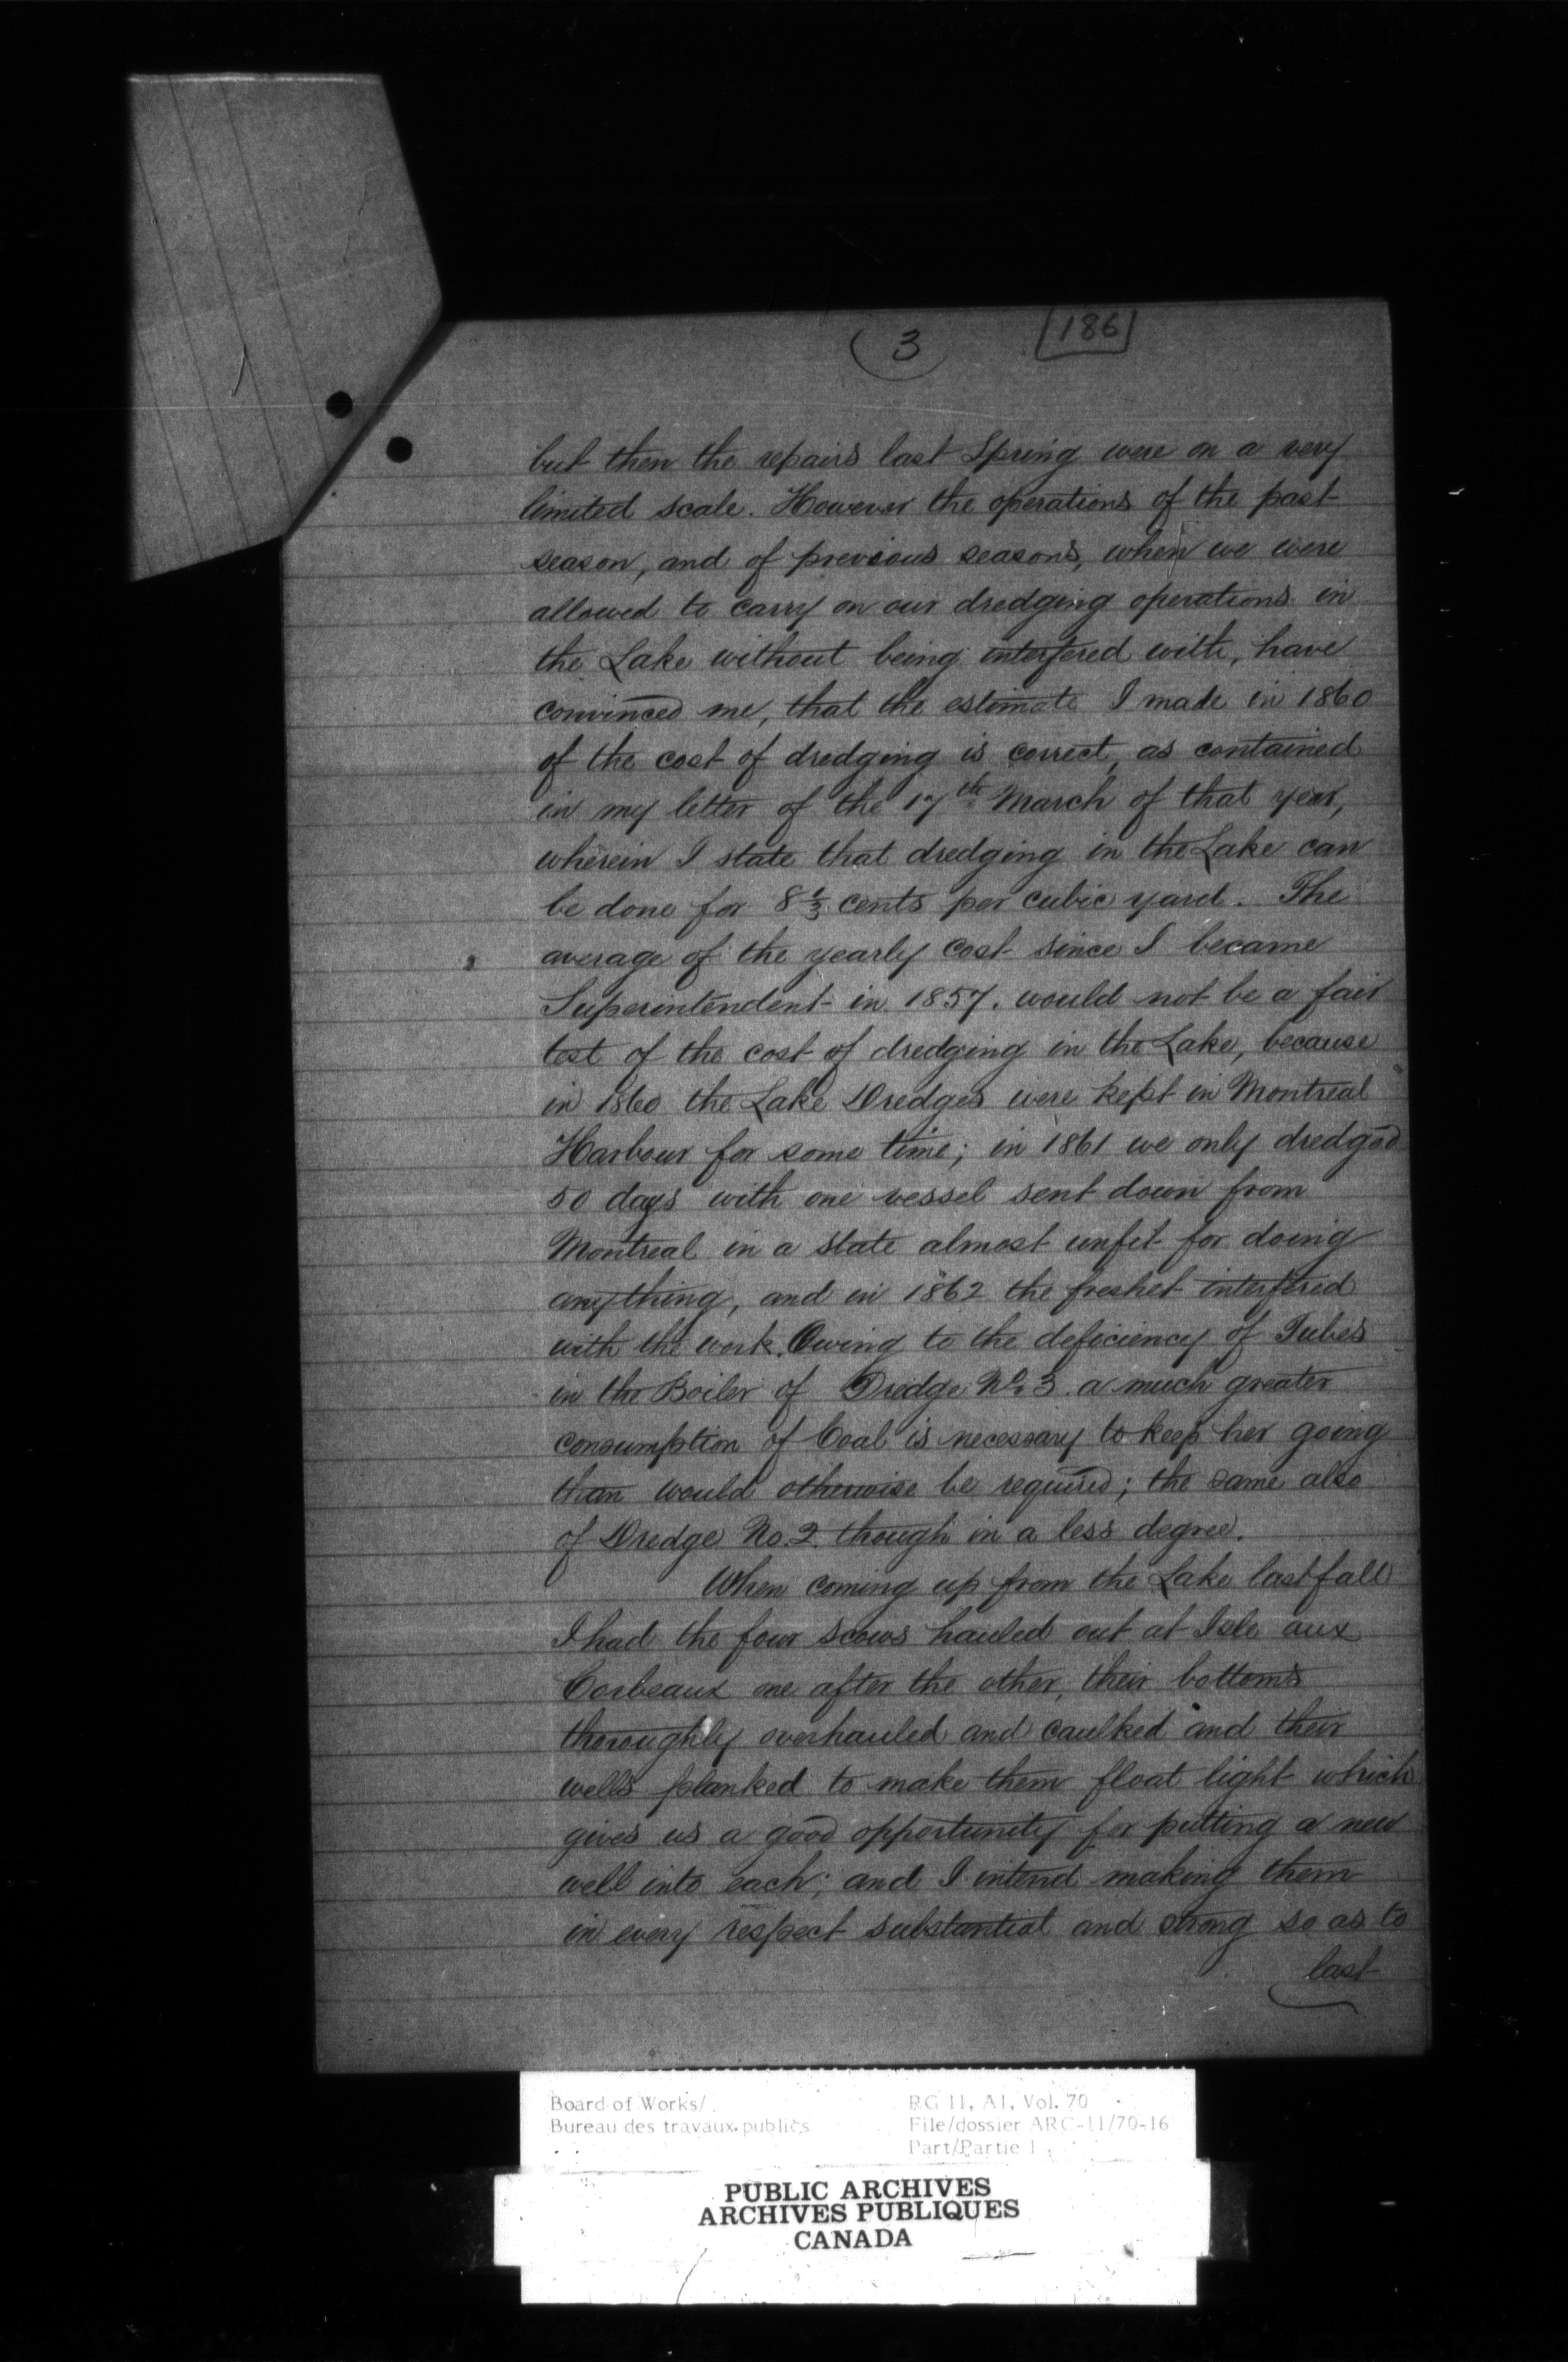 3
186
but then the repairs last Spring were on a very
limited scale. However the operations of the past
season, and of previous seasons, when we were
allowed to carry on our dredging operations in
the Lake without being interfered with, have
convinced me, that the estimate I made in 1860
of the cost of dredging is correct, as contained
in my letter of the 17th March of that year,
wherein I state that dredging in the Lake can
be done for 8 1/3 cents per cubic yard. The
average of the yearly cost since I became
Superintendent in 1857. would not be a fair
test of the cost of dredging in the Lake, because
in 1860 the Lake Dredges were kept in Montreal
Harbour for some time; in 1861 we only dredged
50 days with one vessel sent down from
Montreal in a state almost unfit for doing
anything, and in 1862 the freshet interfered
with the work. Owing to the deficiency of Tubes
in the Boiler of Dredge No. 3 a much greater
consumption of Coal is necessary to keep her going
than would otherwise be required; the same also
of Dredge No. 2. though in a less degree.
When coming up from the Lake last fall
I had the four scows hauled out at Isle aux
Corbeaux one after the other, their bottoms
thoroughly overhauled and caulked and their
wells planked to make them float light which
gives us a good opportunity for putting a new
well into each; and I intend making them
in every respect substantial and strong so as to
last
Board of Works/
Bureau des travaux publics
RG 11, A1, Vol. 70
File/dossier ARC-11/70-16
Part/Partie 1
PUBLIC ARCHIVES
ARCHIVES PUBLIQUES
CANADA